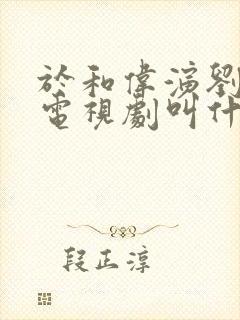 於和偉演劉
電視劇叫什
段正淳